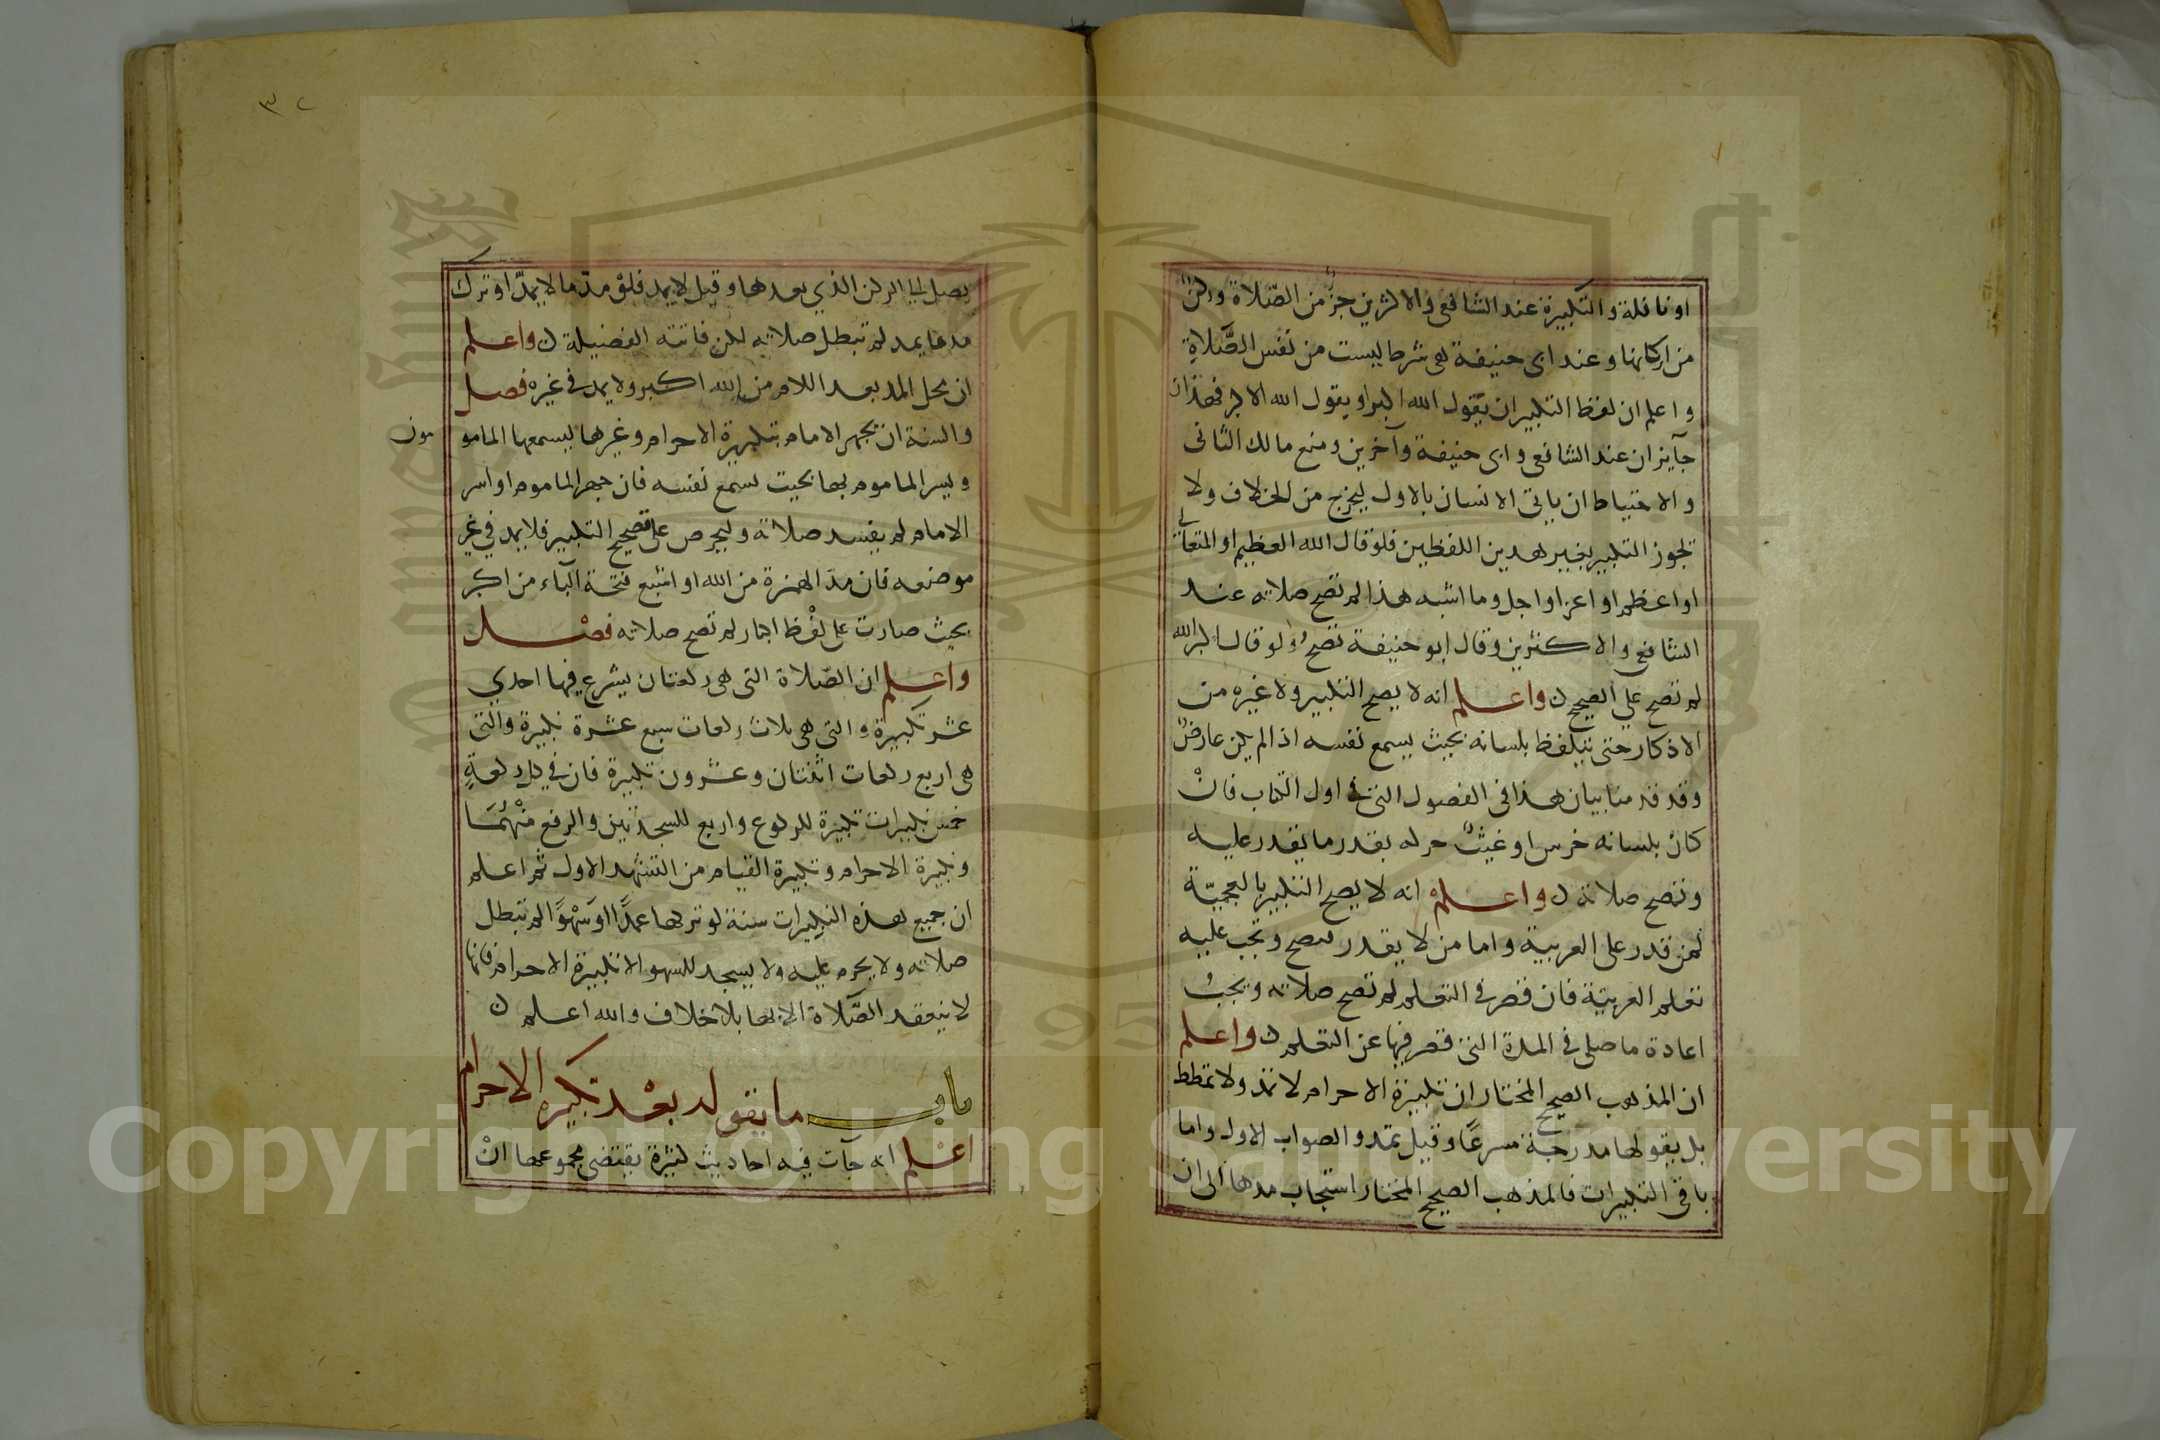 او نافلة والتكبيرة عند الشافعي والاكثرين جزء من الصلاة وركن
من اركانها وعند ابي حنيفة هي شرط ليست من نفس الصَّلاةِ
واعلم ان لفظ التكبير ان يقول الله اكبر او يقول الله الاكبر فهذان
جآيزان عند الشافعي وابي حنيفة وآخرين ومنع مالك الثاني
والاحتياط ان ياتي الانسان بالاول ليخرج من الخلاف ولا
تجوز التكبير بغير هذين اللفظين فلو قال الله العظيم او المتعالي
او اعظم او اعز او اجل وما اشبه هذا لم تصح صلاته عند
الشافعي والاكثرين وقال ابو حنيفة تصح ولو قال اكبر الله
لم تصح علي الصحيح ن واعلم انه لا يصح التكبير ولا غيره من
الاذكار حتى يتلفظ بلسانه بحيث يسمع نفسه اذا لم يكن عارض
وقد قدمنا بيان هذا في الفصول التي في اول الكتاب فانْ
كان بلسانه خرس او عيث حركه بقدر ما يقدر عليه
وتصح صلاته ن واعلمْ انه لا يصح التكبير بالعجميّة
لمن قدر على العربية واما من لا يقدر فيصح وتجب عليه
تعلم العربيّة فان قصر في التعلم لم تصح صلاته ويجبُ
اعادة ما صلى في المدة التي قصر فيها عن التعلم ن واعلم
ان المذهب الصحيح المختار ان تكبيرة الاحرام لا تمد ولا تمطط
بل يقولها مدرجة مسرعًا وقيل تمد والصواب الاول واما
باقي التكبيرات فالمذهب الصحيح المختار استحباب مدها الى ان
٣٢
يصل الى الركن الذي بعدها وقيل لا يمد فلوْ مدّ ما لا يمدّ او ترك
مد ما يمد لم تبطل صلاته لكن فاتته الفضيلة ن واعلم
ان محل المد بعد اللام من الله اكبر ولا يمد في غيره فصل
والسنة ان يجهر الامام بتكبيرة الاحرام وغيرها ليسمعها المامو
مون
ويسر الماموم بها بحيث يسمع نفسه فان جهر الماموم او اسر
الامام لم يفسد صلاته وليحرص على تصحيح التكبير فلا يمد في غير
موضعه فان مدّ الهمزة من الله او اشبع فتحة البآء من اكبر
بحيث صارت على لفْظ اكبار لم تصح صلاته فصْل
واعلم ان الصّلاة التي هي ركعتان يشرع فيها احدي
عشر تكبيرة والتي هي ثلاث ركعات سبع عشرة تكبيرة والتي
هي اربع ركعات اثنتان وعشرون تكبيرة فان في كل ركعةٍ
خمس تكبيرات تكبيرة للركوع واربع للسجدتين والرفع منْهُمَا
وتكبيرة الاحرام وتكبيرة القيام من التشهد الاول ثم اعلم
ان جميع هذه التكبيرات سنة لو تركها عمدًا او سَهْوًا لم تبطل
صلاته ولا يحرم عليه ولا يسجد للسهو الا تكبيرة الاحرام فانها
لا ينعقد الصَّلاة الا بها بلا خلاف والله اعلم ن
باب ما يقوله بعْد تكبيرة الاحرام
اعْلم انه جآت فيه احاديث كثيرة يقتضي مجموعها انْ